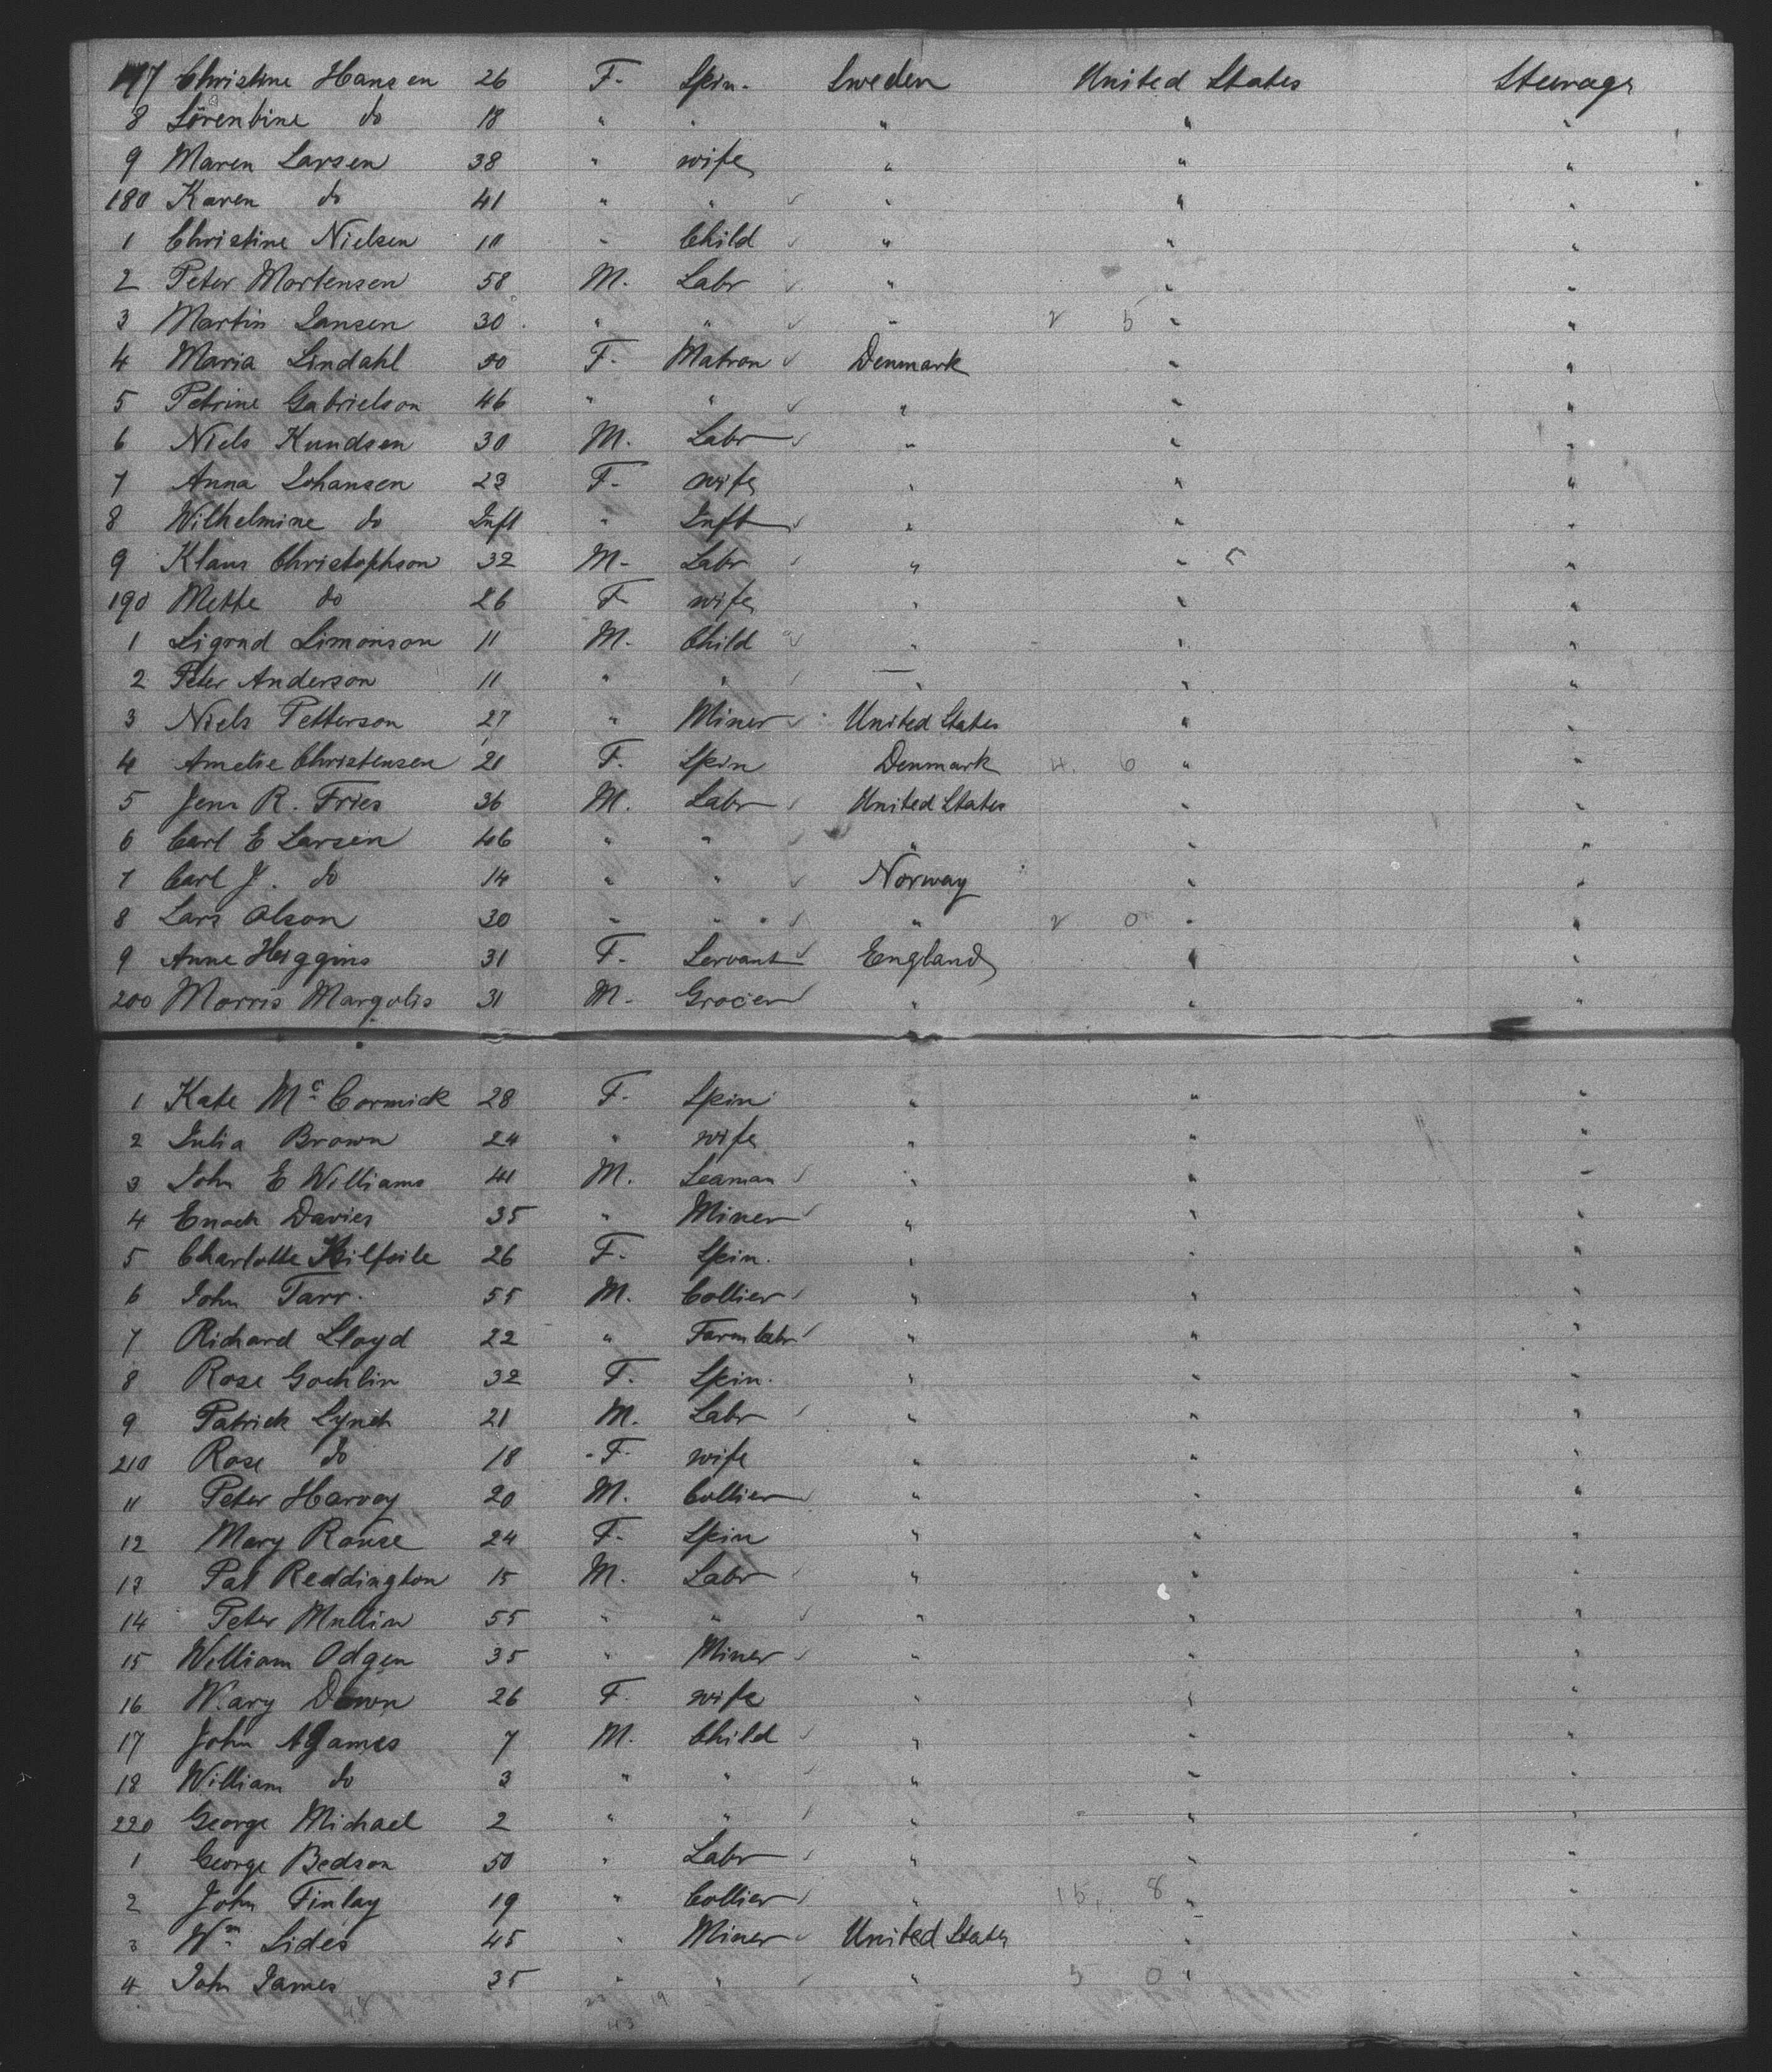 177 Christine Hansen 26 F. Spin. Sweden United States Steerage
8 Sörentine do 18 " " " " "
9 Maren Larsen 38 " wife " " "
180 Karen do 41 " " " " "
1 Christine Nielsen 10 " Child " " "
2 Peter Mortensen 58 M. Labr " " "
3 Martin Jansen 30 " " " 2 5 " "
4 Maria Lindahl 50 F. Matron Denmark " "
5 Petrine Gabrielson 46 " " " " "
6 Niels Kundsen 30 M. Labr " " "
7 Anna Johansen 23 F. wife " " "
8 Wilhelmine do Inft " Inft " " "
9 Klaus Christophson 32 M. Labr " " 5 "
190 Mette do 26 F wife " " "
1 Sigrnd Simonson 11 M. Child " " "
2 Peter Anderson 11 " " " " "
3 Niels Petterson 27 " Miner United States " "
4 Amelie Christensen 21 F. Spin Denmark 4. 6 " "
5 Jens R. Fries 36 M. Labr United States " "
6 Carl E Larsen 46 " " " " "
7 Carl J. do 14 " " Norway " "
8 Lars Olson 30 " " " 2 0 " "
9 Anne Higgins 31 F. Servant England " "
200 Morris Margolis 31 M. Grocer " " "
1 Kate Mc Cormick 28 F. Spin " " "
2 Julia Brown 24 " wife " " "
3 John E Williams 41 M. Seaman " " "
4 Enoch Davies 35 " Miner " " "
5 Charlotte Kilfoile 26 F. Spin. " " "
6 John Tarr. 55 M. Collier " " "
7 Richard Lloyd 22 " Farm labr " " "
8 Rose Gochlin 32 F. Spin. " " "
9 Patrick Lynch 21 M. Labr " " "
210 Rose do 18 F. wife " " "
11 Peter Harvey 20 M. Collier " " "
12 Mary Rouse 24 F. Spin " " "
13 Pat Reddington 15 M. Labr " " "
14 Peter Mullin 55 " " " " "
15 William Odgen 35 " Miner " " "
16 Mary Down 26 F. wife " " "
17 John A James 7 M. Child " " "
18 William do 3 " " " " "
220 George Michael 2 " " " " "
1 George Bedson 50 " Labr " " "
2 John Finlay 19 " Collier " 15. 8 " "
3 Wm Sides 45 " Miner United States " "
4 John James 35 " " " 3 0 " "
48 19
43